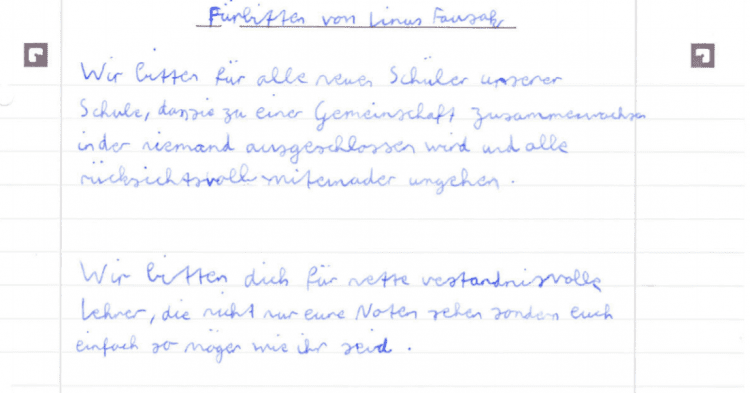 Fürbitten von Linus
Wir bitten für alle neuen Schüler unserer
Schule, dass sie zu einer Gemeinschaft zusammenwachsen
in der niemand ausgeschlossen wird und alle
rücksichtsvoll mitenader ungehen.
Wir bitten dich für nette vestandnisvolle
Lehrer, die nicht nur eure Noten sehen sondern euch
einfach so mögen wie ihr seid.